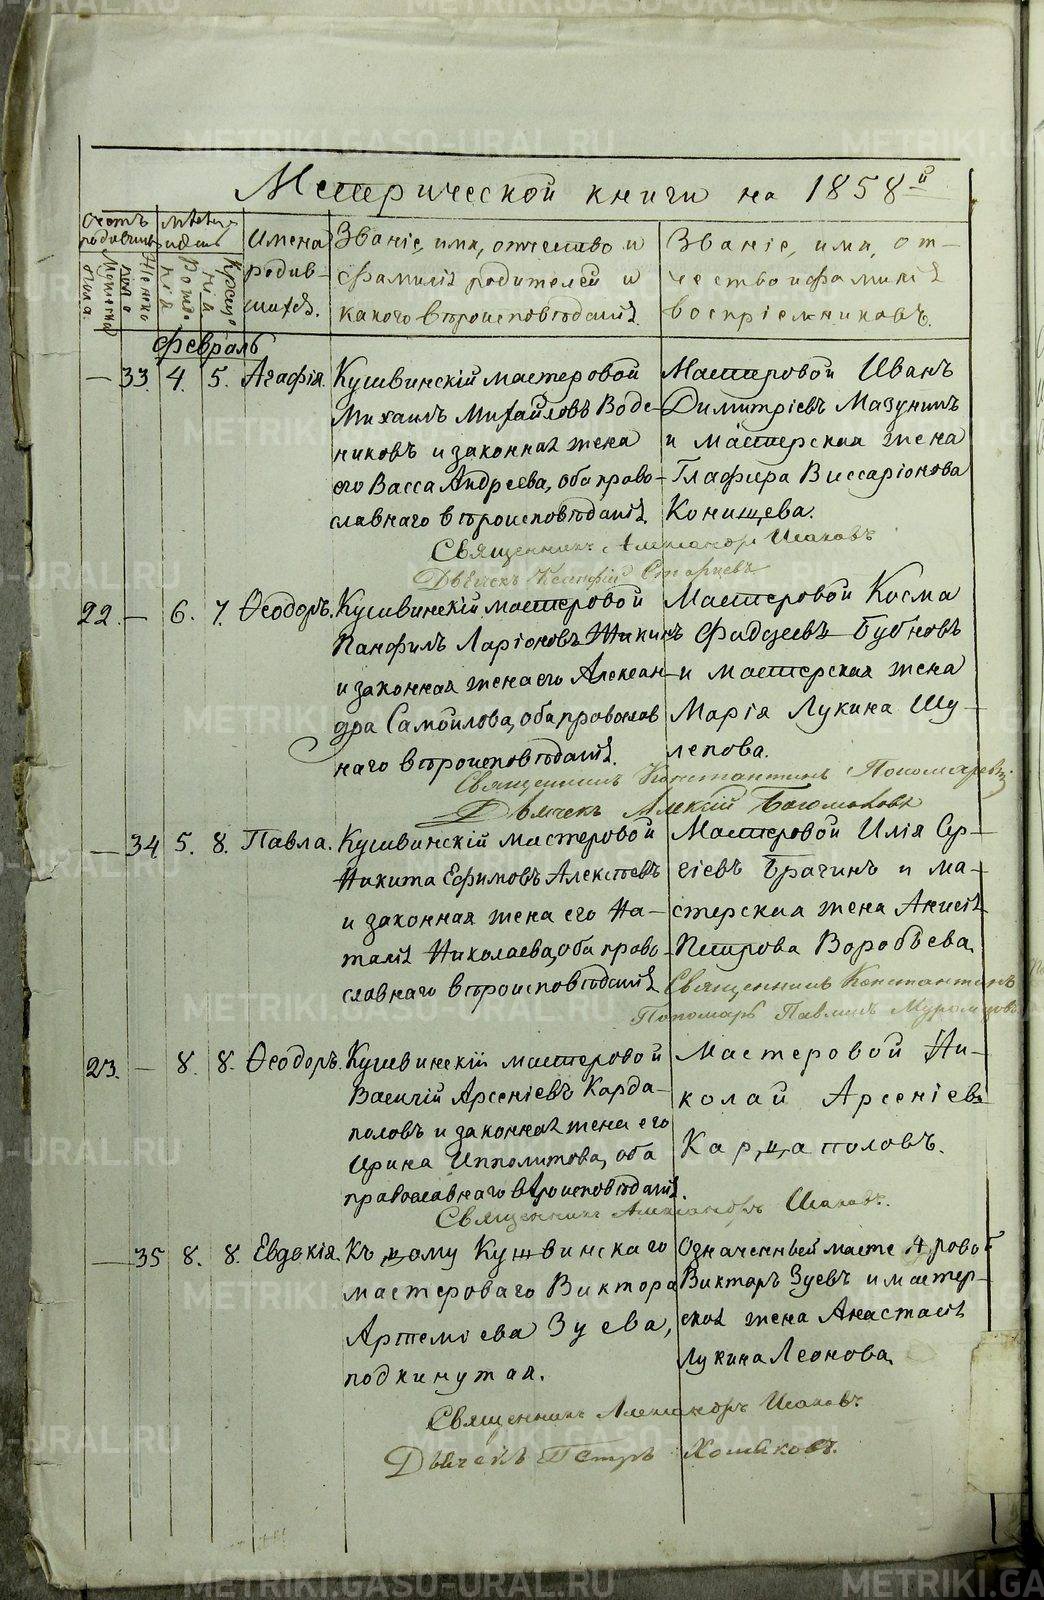 Метрической книги на 1858й
Счетъ родившихся
Мужеска пола.
Женска пола
Месяцъ и день
Рожденія
Крещенія
Имена родившихся.
Званіе, имя, отчество и
фамилія родителей и
какого вѣроисповѣданія.
Званіе, имя, от-
чество и фамилія
воспріемниковъ.
Февраль
— 33. 4. 5. Агафія. Кушвинскій мастеровой
Михаилъ Михайловъ Воде-
никовъ и законная жена
его Васса Андреева, оба право-
славнаго вѣроисповѣданія.
Мастеровой Иванъ
Димитріевъ Мазунинъ
и мастерская жена
Глафира Виссаріонова
Конищева.
Священникъ Александръ Исаковъ
Дьячекъ Старцевъ
22. — 6. 7. Ѳеодоръ. Кушвинскій мастеровой
Панфилъ Ларіоновъ Шикинъ
и законная жена его Алексан-
дра Самойлова, оба православ
наго вѣроисповѣданія.
Мастеровой Косма
Фадѣевъ Бубновъ
и мастерская жена
Марія Лукина Шу-
лепова.
Священникъ Константинъ Пономаревъ
Дьячекъ Алексій Богомоловъ
— 34 5. 8. Павла. Кушвинскій мастеровой
Никита Ефимовъ Алексѣевъ
и законная жена его На-
талія Николаева, оба право-
славнаго вѣроисповѣданія
Мастеровой Илія Сер-
гіевъ Брагинъ и ма-
стерская жена Анисія
Петрова Воробьева.
Священникъ Константинъ
Пономарь Павлинъ Муромцовъ
23. — 8. 8. Ѳеодоръ. Кушвинскій мастеровой
Василій Арсеніевъ Карда-
половъ и законная жена его
Ирина Ипполитова, оба
православнаго вѣроисповѣданія.
Мастеровой Ни-
колай Арсеніевъ
Кардаполовъ.
Священникъ Александръ Исаковъ.
— 35 8. 8. Евдокія. Къ дому Кушвинскаго
мастероваго Виктора
Артеміева Зуева,
подкинутая.
Означенный мастеровой
Викторъ Зуевъ и мастер-
ская жена Анастасія
Лукина Леонова.
Священникъ Александръ Исаковъ.
Дьячекъ Петръ Хомяковъ.
METRIKI.GASO-URAL.RU